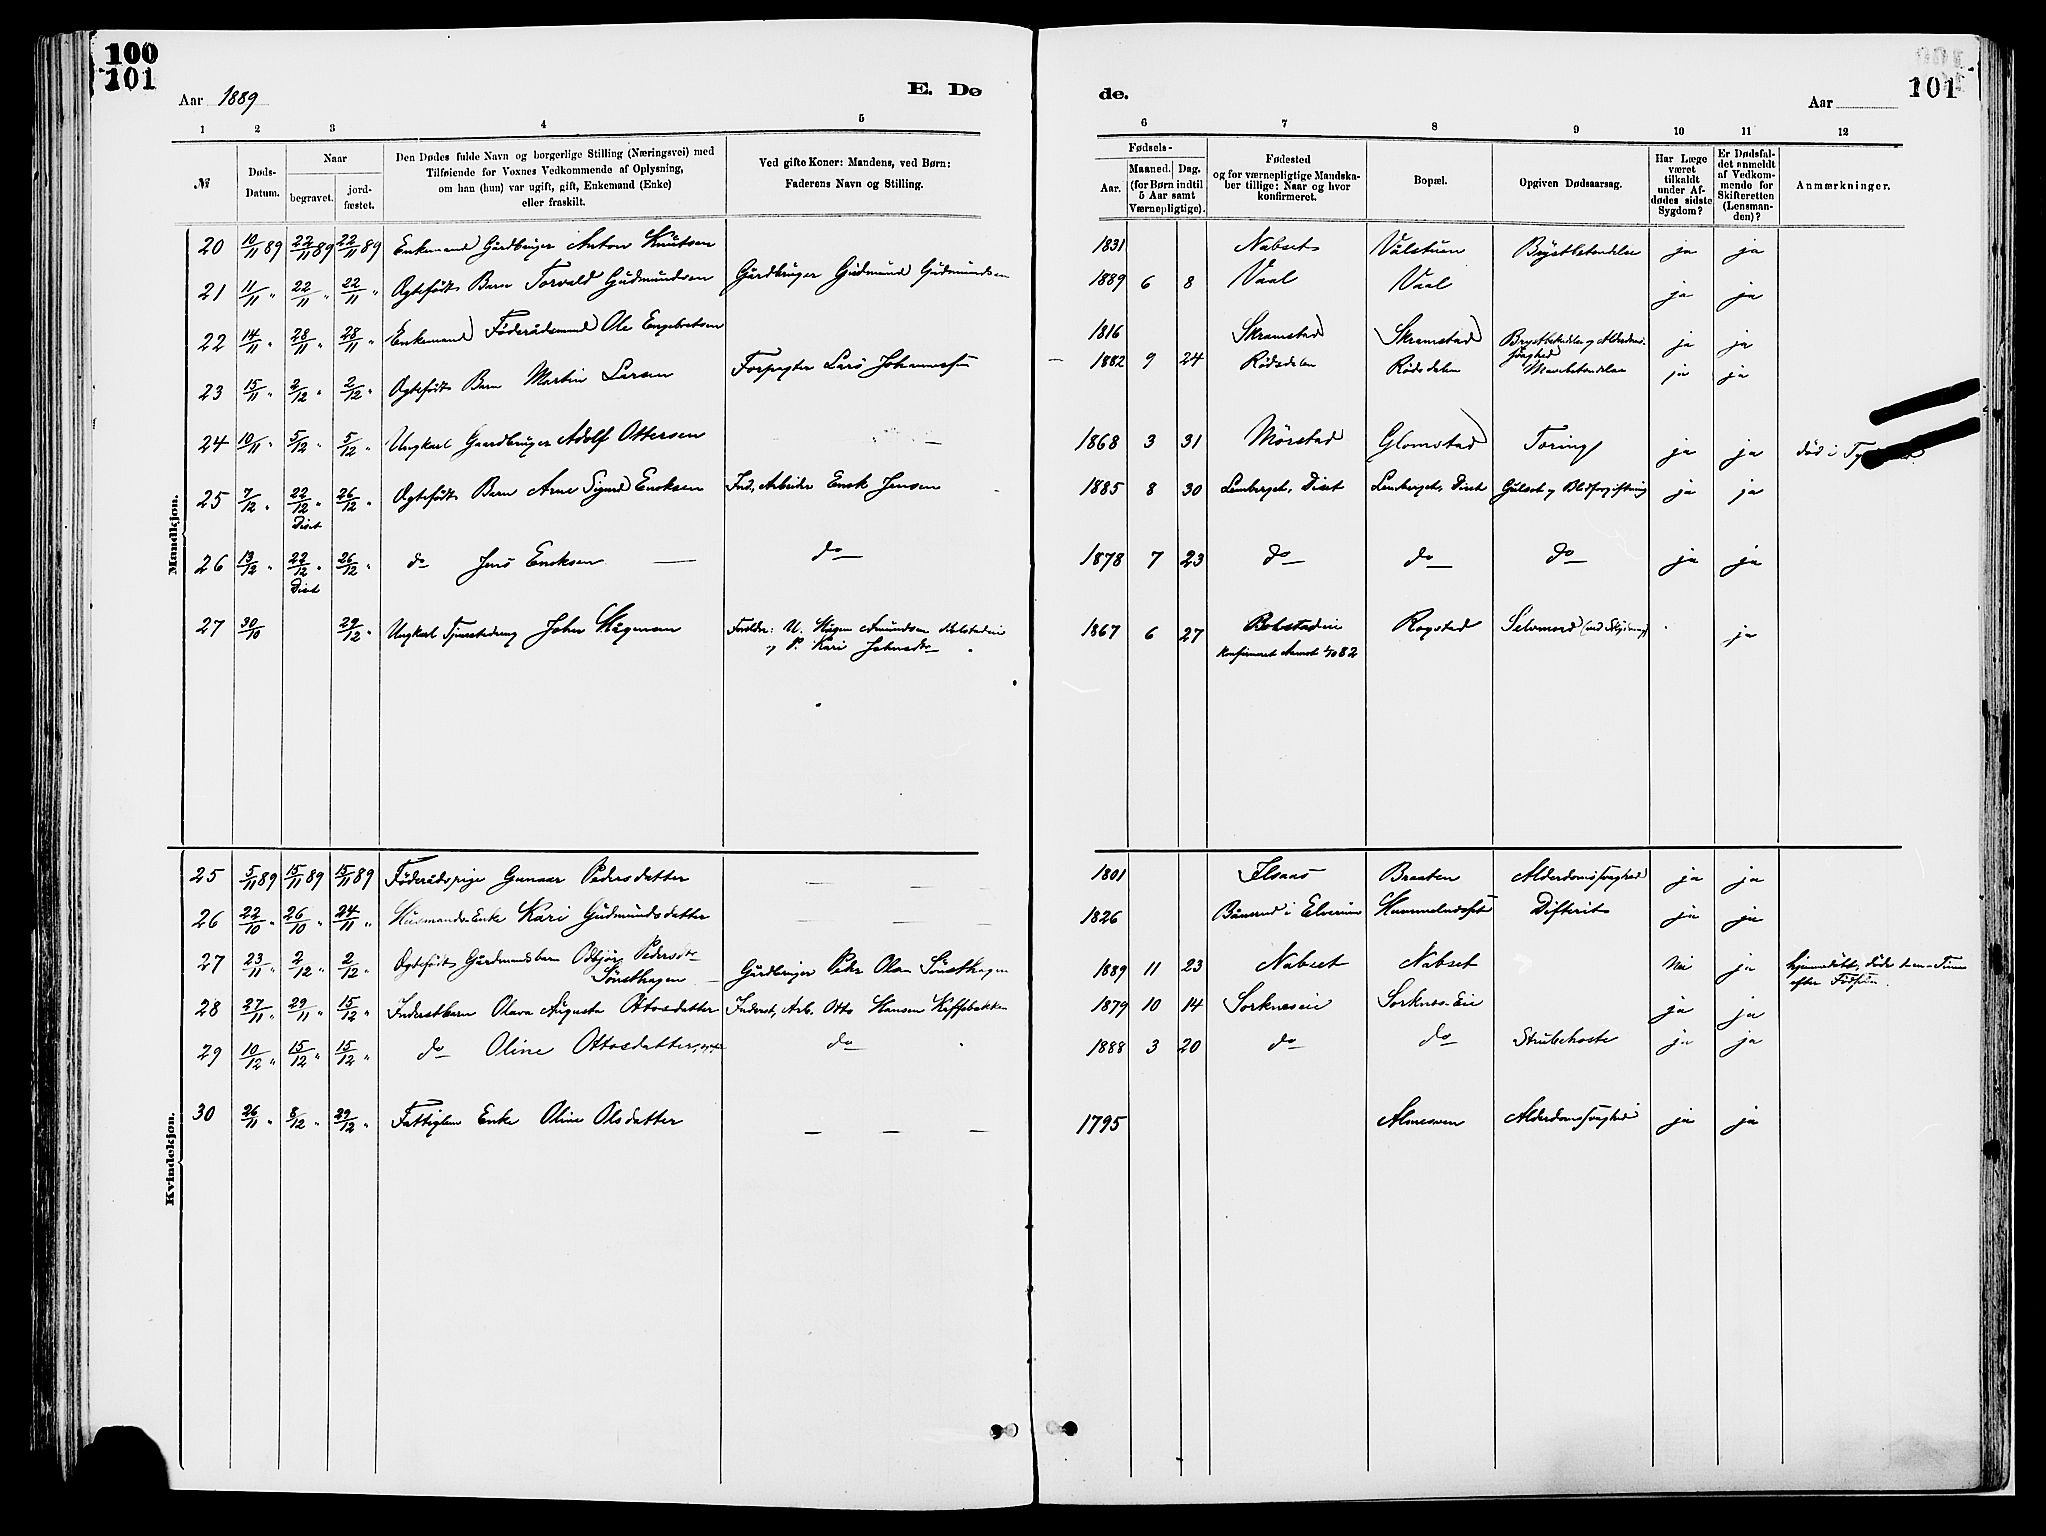 100
101
Aar 1889
E. Dø
1 2 3 4 5
№
Døds-
Datum.
Naar
begravet.
jord-
fæstet.
Den Dødes fulde Navn og borgerlige Stilling (Næringsvei) med
Tilføiende for Voxnes Vedkommende af Oplysning,
om han (hun) var ugift, gift, Enkemand (Enke)
eller fraskilt.
Ved gifte Koner: Mandens, ved Børn:
Faderens Navn og Stilling.
Mandkjøn.
20 10/11 89 22/11 89 22/11 89 Enkemand Gårdbruger Anton Knutsen
21 11/11 " 22/11 " 22/11 " Ægtefødt Barn Torvald Gudmundsen Gårdbruger Gudmund Gudmundsen
22 14/11 " 28/11 " 28/11 " Enkemand Föderådsmand Ole Engebretsen
23 15/11 " 2/12 " 2/12 " Ægtefødt Barn Martin Larsen Forpagter Lars Johannessen
24 10/11 " 5/12 " 5/12 " Ungkarl Gaardbruger Adolf Ottersen —
25 7/12 " 22/12 " 26/12 " Ægtefødt Barn Arne Sigurd Ericksen Ind. Arbeider Erick Jensen
Diset
26 13/12 " 22/12 " 26/12 " do Jens Ericksen — do
Diset
27 30/10 29/12 " Ungkarl Tjenestedreng John Hågensen Forældre: U. Hågen Amundsen
og P. Kari Johnsdtr
Kvindekjøn.
25 5/11 89 15/11 89 15/11 89 Föderådspige Gunaar Pedersdatter — —
26 22/10 " 26/10 " 24/11 " Husmands Enke Kari Gudmundsdatter — —
27 23/11 " 2/12 " 2/12 " Ægtefødt Gårdmandsbarn Odbjør Pedersdtr
Sönsthagen — Gårdbruger Peder Olsen Sönsthagen
28 27/11 " 29/11 " 15/12 " Inderstbarn Olava Augusta Ottosdatter Inderst, Arb. Otto Hansen
29 10/12 " 15/12 " 15/12 " do Oline Ottosdatter do
30 26/11 " 8/12 " 29/12 " Fattiglem Enke Oline Olsdatter — — —
de.
Aar
101
6 7 8 9 10 11 12
Fødsels-
Aar.
Maaned. Dag.
(for Børn indtil
5 Aar samt
Værnepligtige).
Fødested
og for værnepligtige Mandska-
ber tillige: Naar og hvor
konfirmeret.
Bopæl.
Opgiven Dødsaarsag.
Har Læge
været
tilkaldt
under Af-
dødes sidste
Sygdom?
Er Dødsfal-
det anmeldt
af Vedkom-
mende for
Skifteretten
(Lensman-
den)?
Anmærkninger.
1831 Nabset Valstuen Brystbetendelse ja ja
1889 6 8 Vaal Vaal ja ja
1816 Skramstad Skramstad Brystbetendelse og Alderdoms-
svaghed ja ja
— 1882 9 24 Rødsdalen Rødsdalen Mavebetendelse ja ja
1868 3 31 Mørstad Glomstad Tæring ja ja død i
1885 8 30 Lemberget, Diset Lemberget, Diset Gulsot og Blodforgiftning ja ja
1878 7 23 do do do ja ja
1867 6 27 Rogstad Selvmord (ved Skydning) ja
konfirmeret Aamot 1/10 82
1801 Ilsaas Braaten Alderdomssvaghed ja ja
1826 i Elverum Difterit ja ja
1889 11 23 Nabset Nabset Nei ja hjemmedøbt, døde en Time
efter Fødselen.
1879 10 14 Sorknæseie Sorknæs-Eie ja ja
1888 3 20 do do Strubehoste ja ja
1795 Alderdomssvaghed ja ja